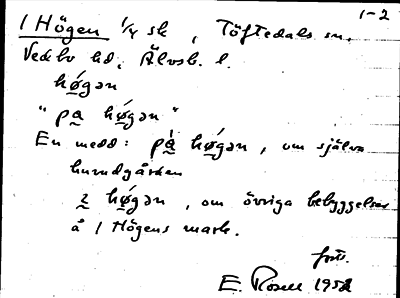 1-2
1 Högen 1/4 sk, Töftedals sn.
Vedbo hd, Älvsb. l.
hǿgən
"pa̱ hǿgən"
En medd: på̱ hǿgən, om själva
huvudgården
2 hǿgən, om övriga bebyggelsen
å 1 Högens mark.
forts.
E. Rosell 1952